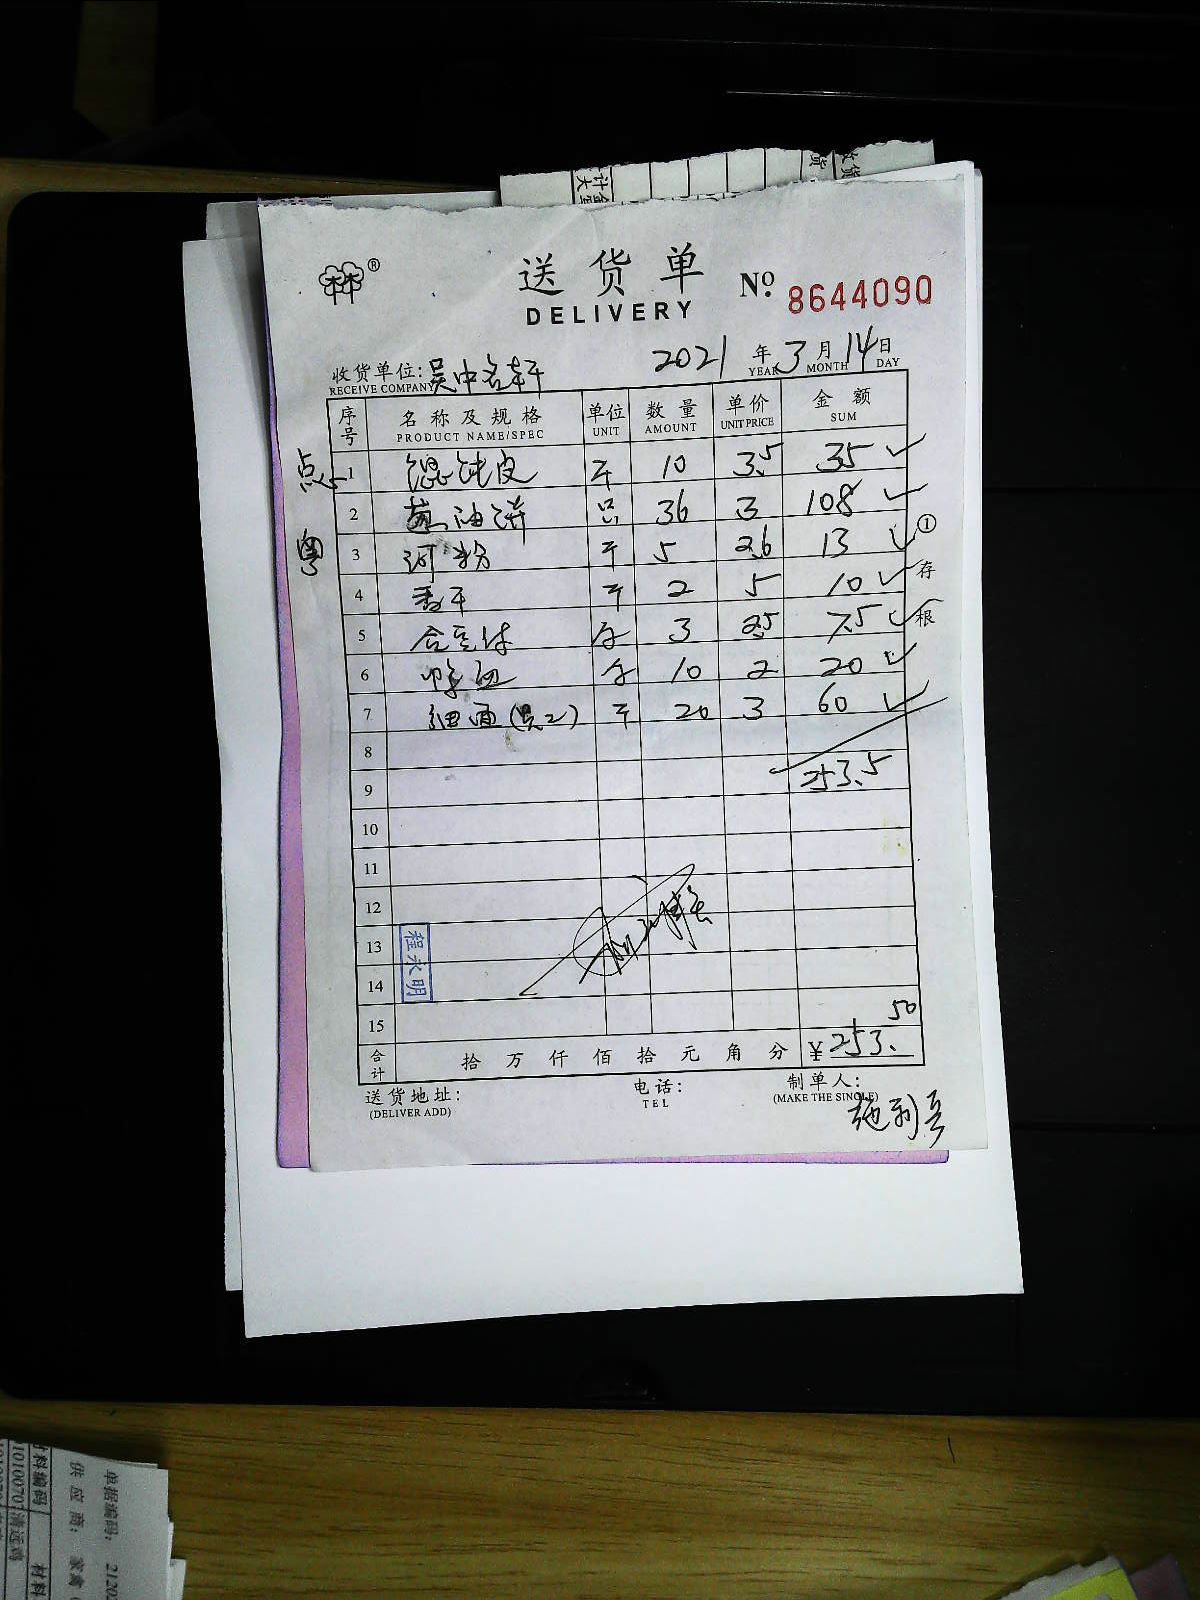 送货单
DELIVERY
№ 8644090
®
收货单位: 吴中名轩 2021 年 3 月 14 日
RECEIVE COMPANY YEAR MONTH DAY
序号 名称及规格 单位 数量 单价 金额
PRODUCT NAME/SPEC UNIT AMOUNT UNIT PRICE SUM
点 1 馄饨皮 斤 10 3.5 35
2 葱油饼 只 36 3 108
粤 3 河粉 斤 5 2.6 13
4 香干 斤 2 5 10
5 3 2.5 7.5
6 10 2 20
7 细面 斤 20 3 60
8
9 253.5
10
11
12
13
14
15
程永明
合计 拾 万 仟 佰 拾 元 角 分 ¥253.50
送货地址: 电话: 制单人:
(DELIVER ADD) TEL (MAKE THE SINGLE)
施利
①存根
单据编码: 2120
供应商: 家禽
材料编码
1010070 清远鸡
材料